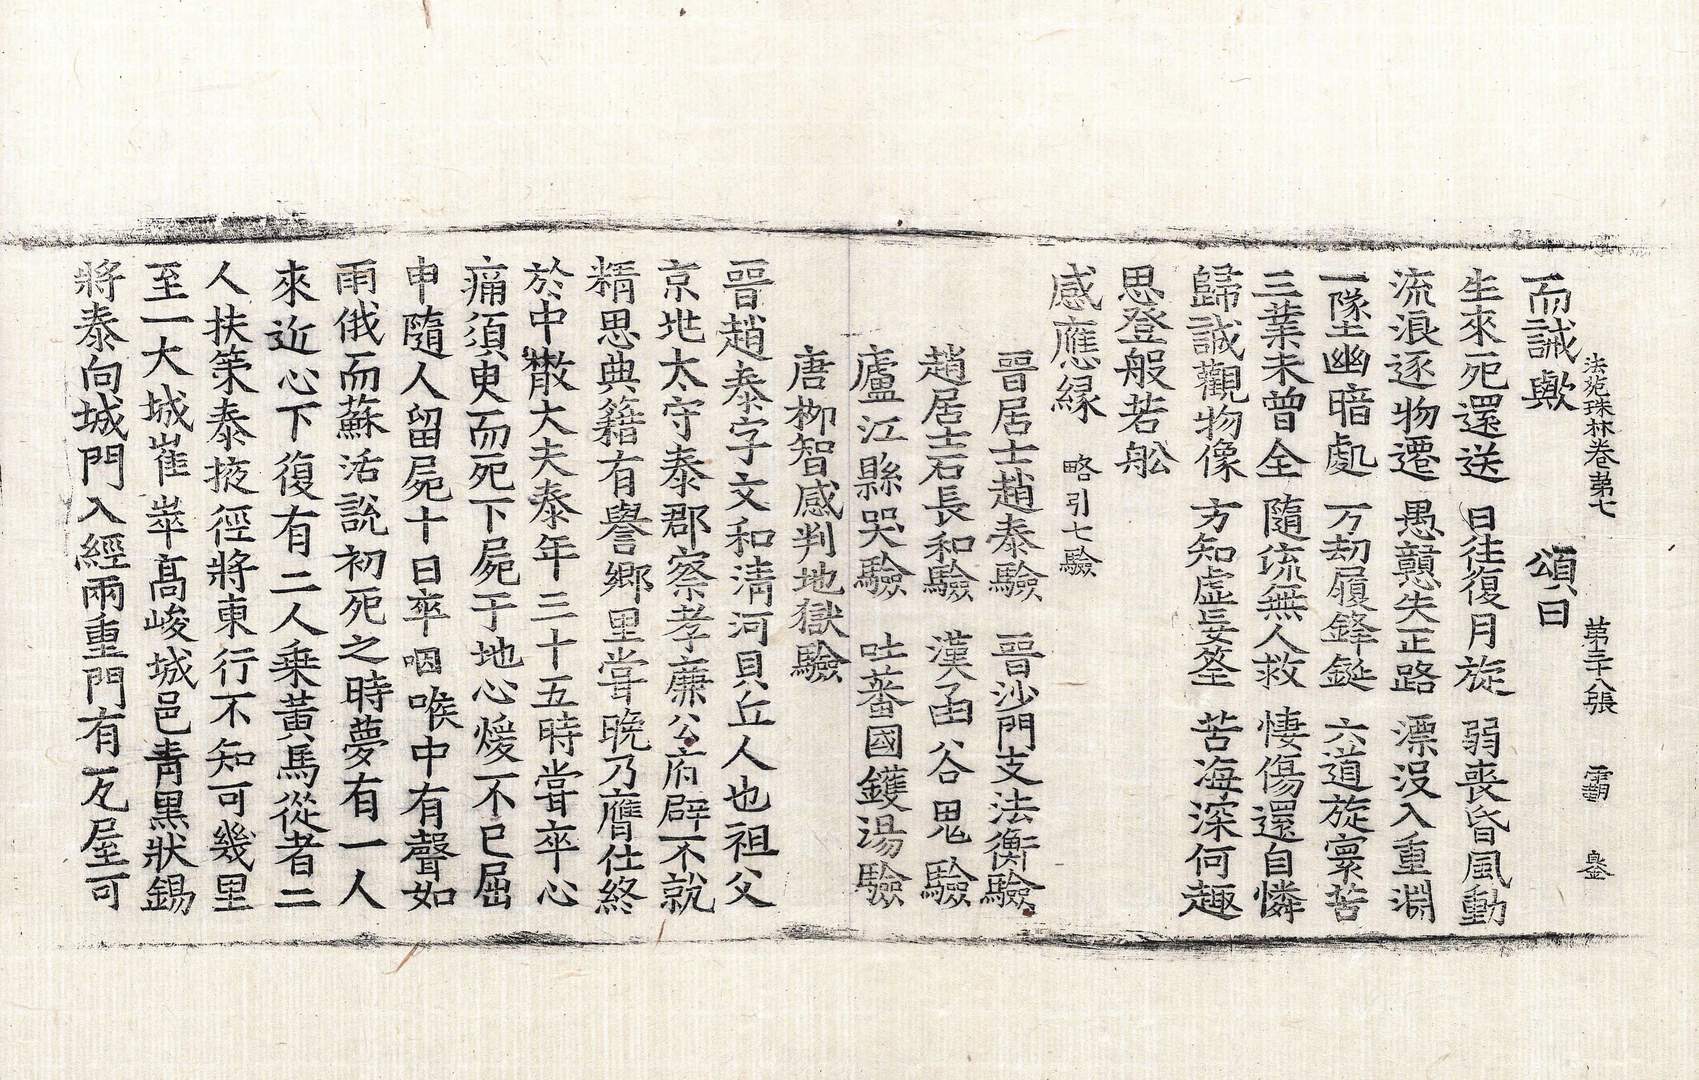 法苑珠林卷第七　第三十八張　覇　㿿
而誡歟　頌曰
生來死還送　日往復月旋　弱喪昏風動
流浪逐物遷　愚戇失正路　漂没入重淵
一墜幽暗處　万劫履鋒鋋　六道旋寰苦
三業未曾全　隨流無人救　悽傷還自憐
歸誠觀物像　方知虛妄筌　苦海深何趣
思登般若舩
感應縁　略引七驗
晉居士趙泰驗　晉沙門支法衡驗
趙居士石長和驗　漢函谷鬼驗
廬江縣哭驗　吐蕃國鑊湯驗
唐柳智感判地獄驗
晉趙泰字文和清河貝丘人也祖父
京兆太守泰郡察孝廉公府辟不就
精思典籍有譽鄉里當晩乃膺仕終
於中散大夫泰年三十五時嘗卒心
痛須臾而死下屍于地心煖不已屈
申隨人留屍十日卒咽喉中有聲如
雨俄而蘇活說初死之時夢有一人
來近心下復有二人乗黃馬從者二
人扶策泰掖徑將東行不知可幾里
至一大城崔崒高峻城邑青黑狀錫
將泰向城門入經兩重門有瓦屋可